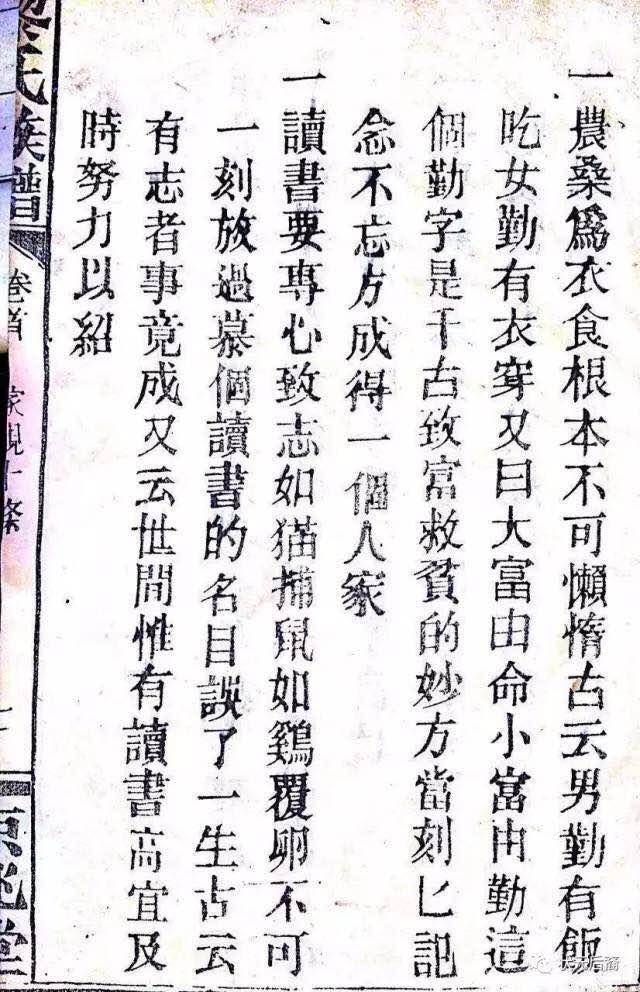 一農桑爲衣食根本不可懶惰古云男勤有飯
吃女勤有衣穿又曰大富由命小富由勤這
個勤字是千古致富救貧的妙方當刻匕記
念不忘方成得一個人家
一讀書要專心致志如猫捕鼠如鷄覆卵不可
一刻放過慕個讀書的名目誤了一生古云
有志者事竟成又云世間惟有讀書高宜及
時努力以紹
氏族譜
卷首
家規十條
堂
状元后裔